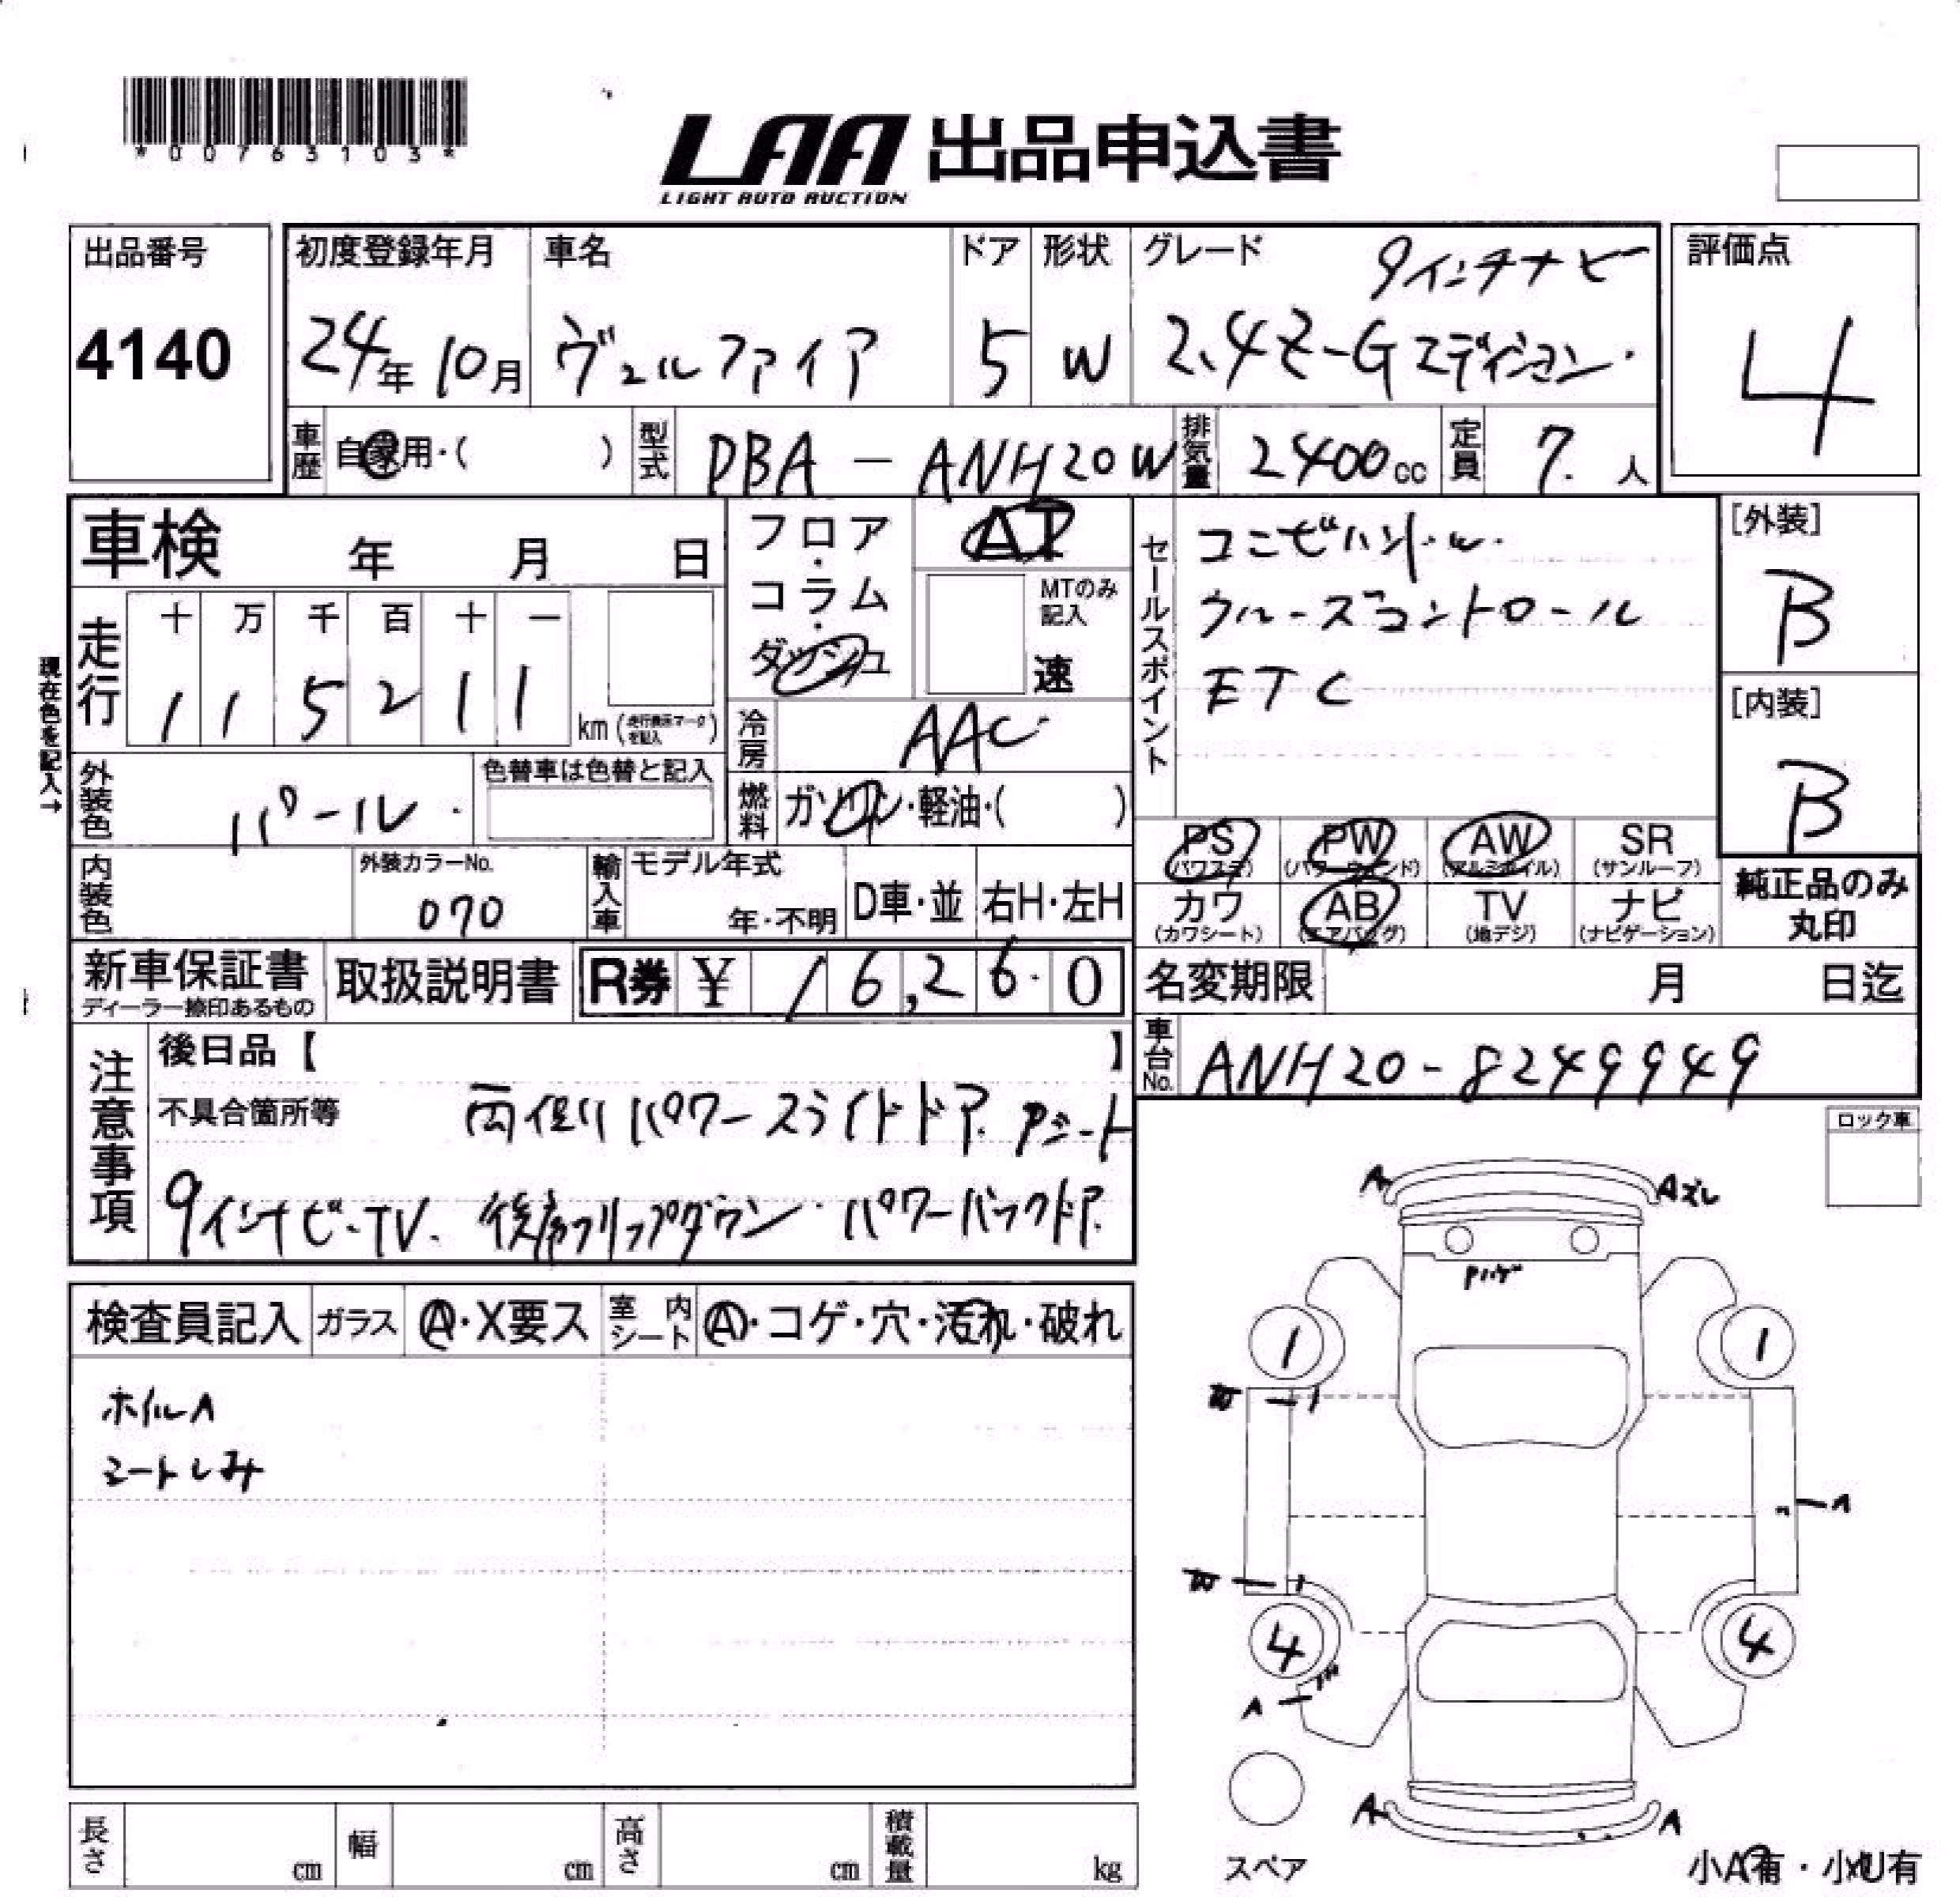 *00763103*
LAA 出品申込書
LIGHT AUTO AUCTION
出品番号
4140
初度登録年月
24年 10月
車名
ヴェルファイア
ドア
5
形状
W
グレード
9インチナビ
2.4Z-Gエディション.
評価点
4
車歴
自家用・( )
型式
DBA - ANH20W
排気量
2400cc
定員
7. 人
車検 年 月 日
現在色を記入→
走行
十 万 千 百 十 一
1 1 5 2 1 1
km (走行表示マークを記入)
フロア・コラム・ダッシュ
AT
MTのみ記入
速
冷房
AAC
燃料
ガソリン・軽油・( )
セールスポイント
コンビハンドル.
クルーズコントロール
ETC
[外装]
B
[内装]
B
外装色
パール.
色替車は色替と記入
内装色
外装カラーNo.
070
輸入車
モデル年式
年・不明
D車・並
右H・左H
PS
(パワステ)
PW
(パワーウィンド)
AW
(アルミホイル)
SR
(サンルーフ)
カワ
(カワシート)
AB
(エアバッグ)
TV
(地デジ)
ナビ
(ナビゲーション)
純正品のみ
丸印
新車保証書
ディーラー捺印あるもの
取扱説明書
R券 ¥ 16,260
名変期限 月 日迄
車台No.
ANH20-8249949
注意事項
後日品【 】
不具合箇所等
両側パワースライドドア. Pシート
9インチナビ-TV. 後席フリップダウン. パワーバックドア.
ロック車
検査員記入
ガラス
A・X要ス
室内シート
A・コゲ・穴・汚れ・破れ
ホイルA
シートしみ
A
Aズレ
Pハゲ
1
1
W
A
W
4
4
A
A
A
スペア
小A有・小U有
長さ cm
幅 cm
高さ cm
積載量 kg